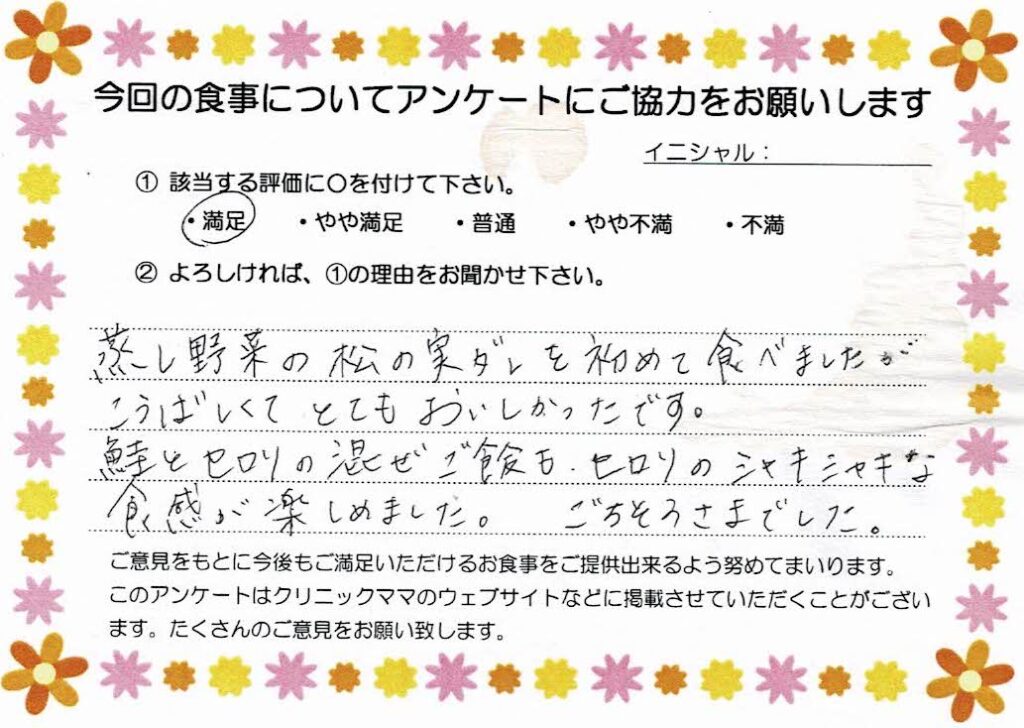 今回の食事についてアンケートにご協力をお願いします
イニシャル：
① 該当する評価に〇を付けて下さい。
・満足 ・やや満足 ・普通 ・やや不満 ・不満
② よろしければ、①の理由をお聞かせ下さい。
蒸し野菜の松の実ダレを初めて食べましたが
こうばしくてとてもおいしかったです。
鮭とセロリの混ぜご飯も、セロリのシャキシャキな
食感が楽しめました。 ごちそうさまでした。
ご意見をもとに今後もご満足いただけるお食事をご提供出来るよう努めてまいります。
このアンケートはクリニックママのウェブサイトなどに掲載させていただくことがござい
ます。たくさんのご意見をお願い致します。